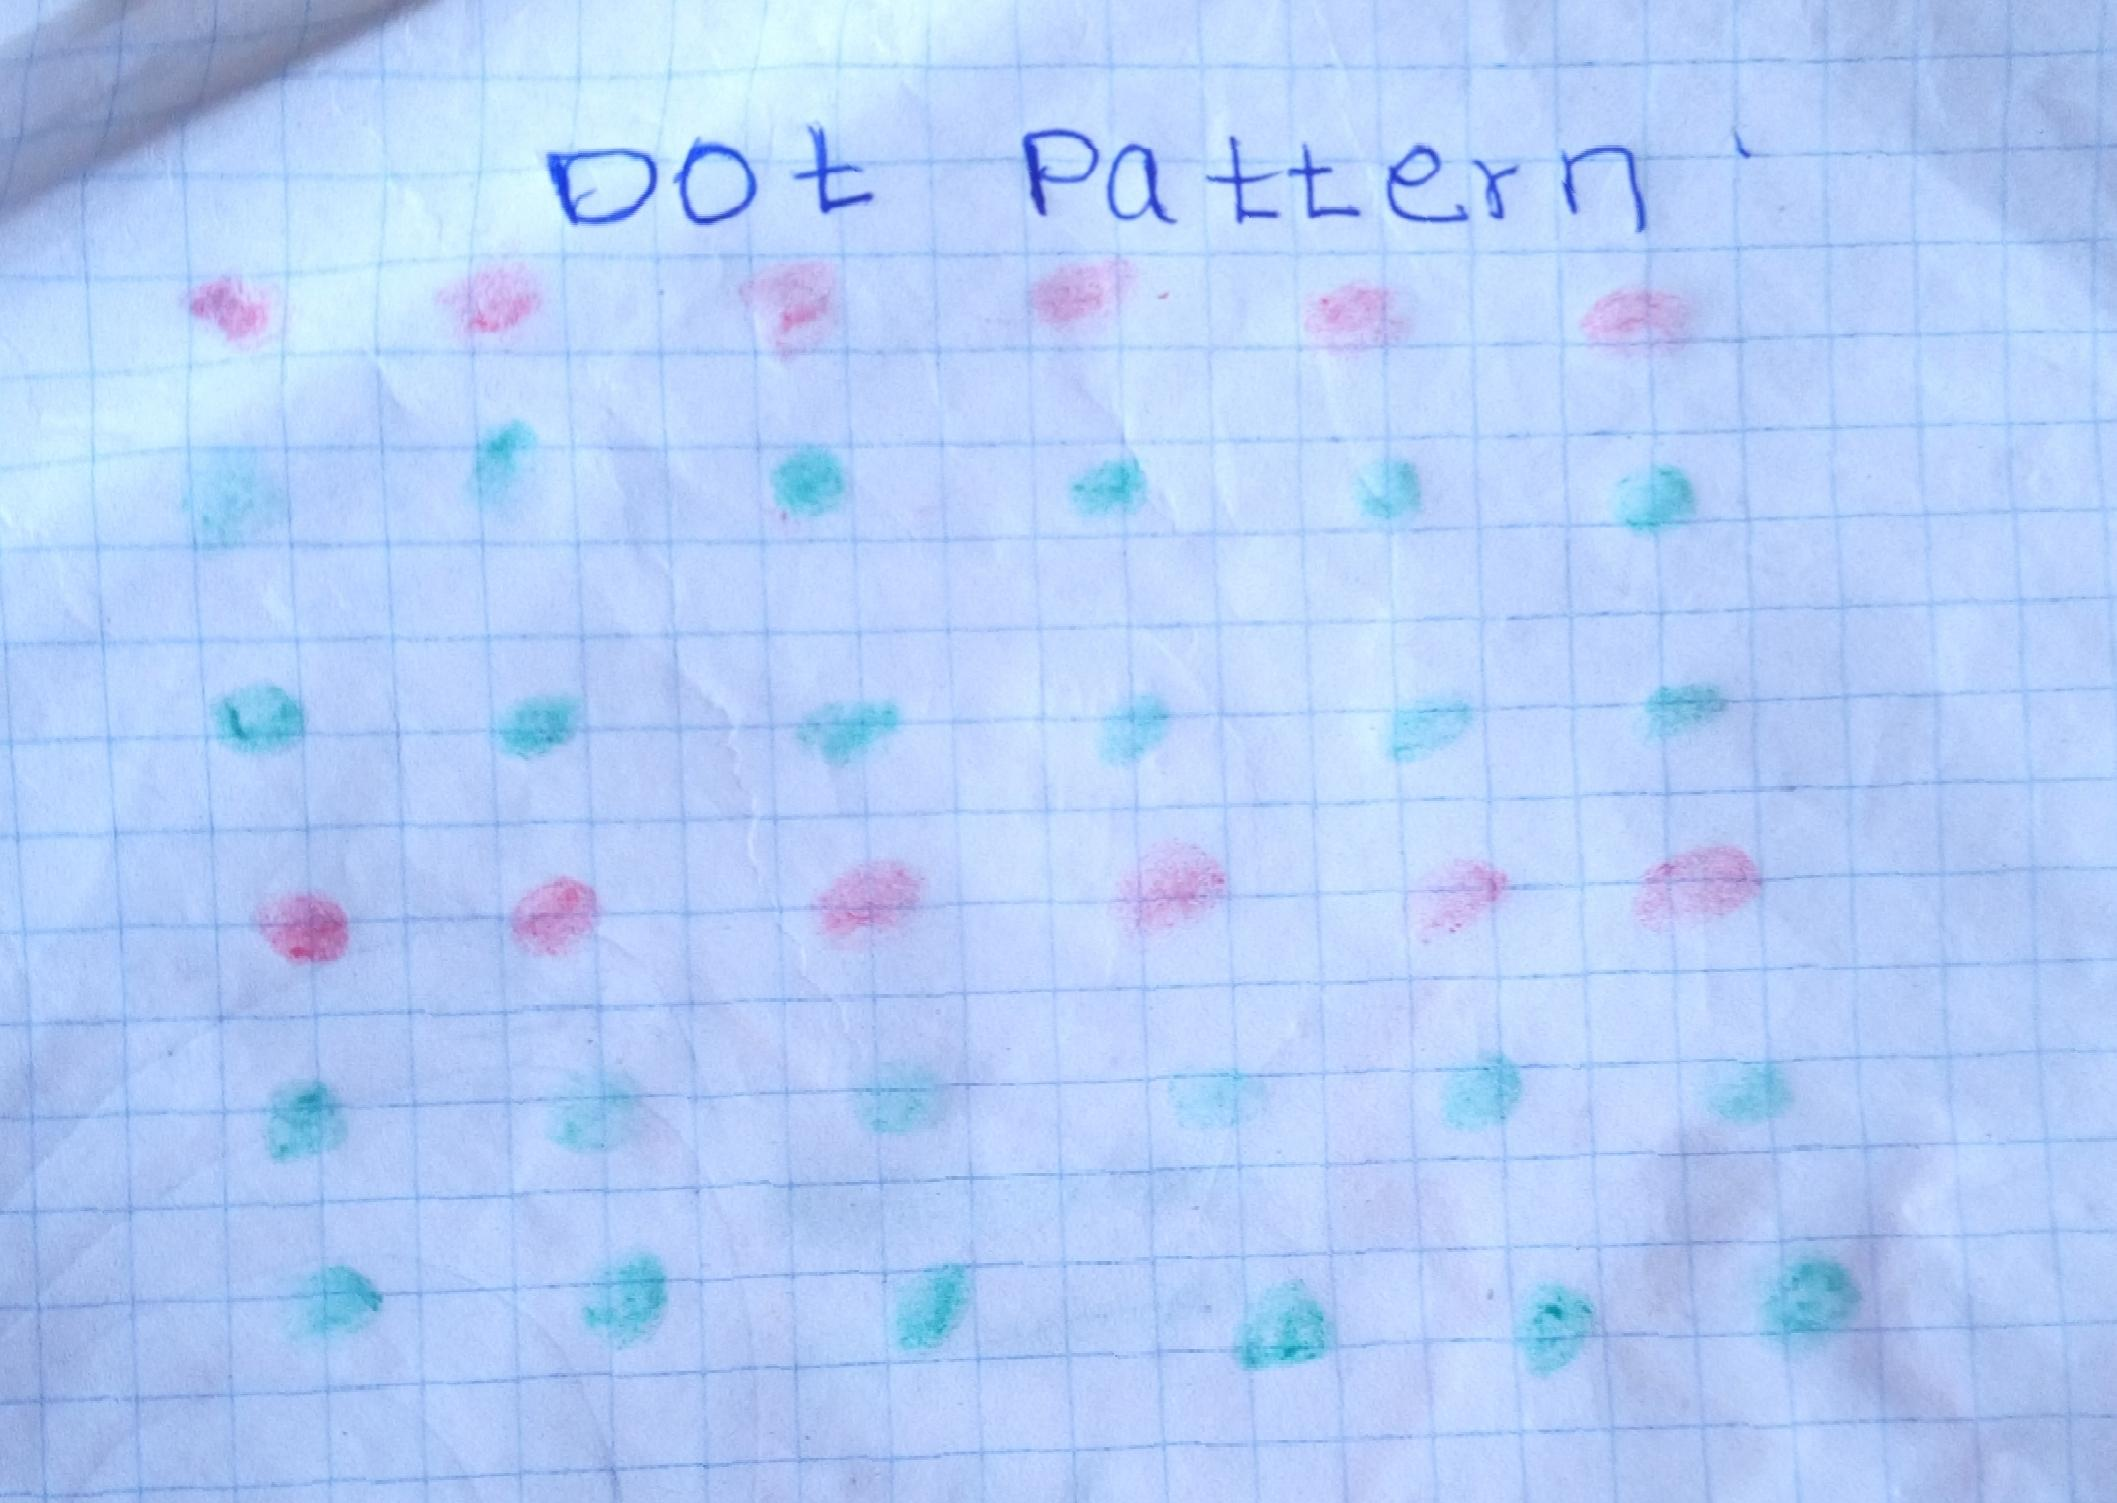 Dot Pattern